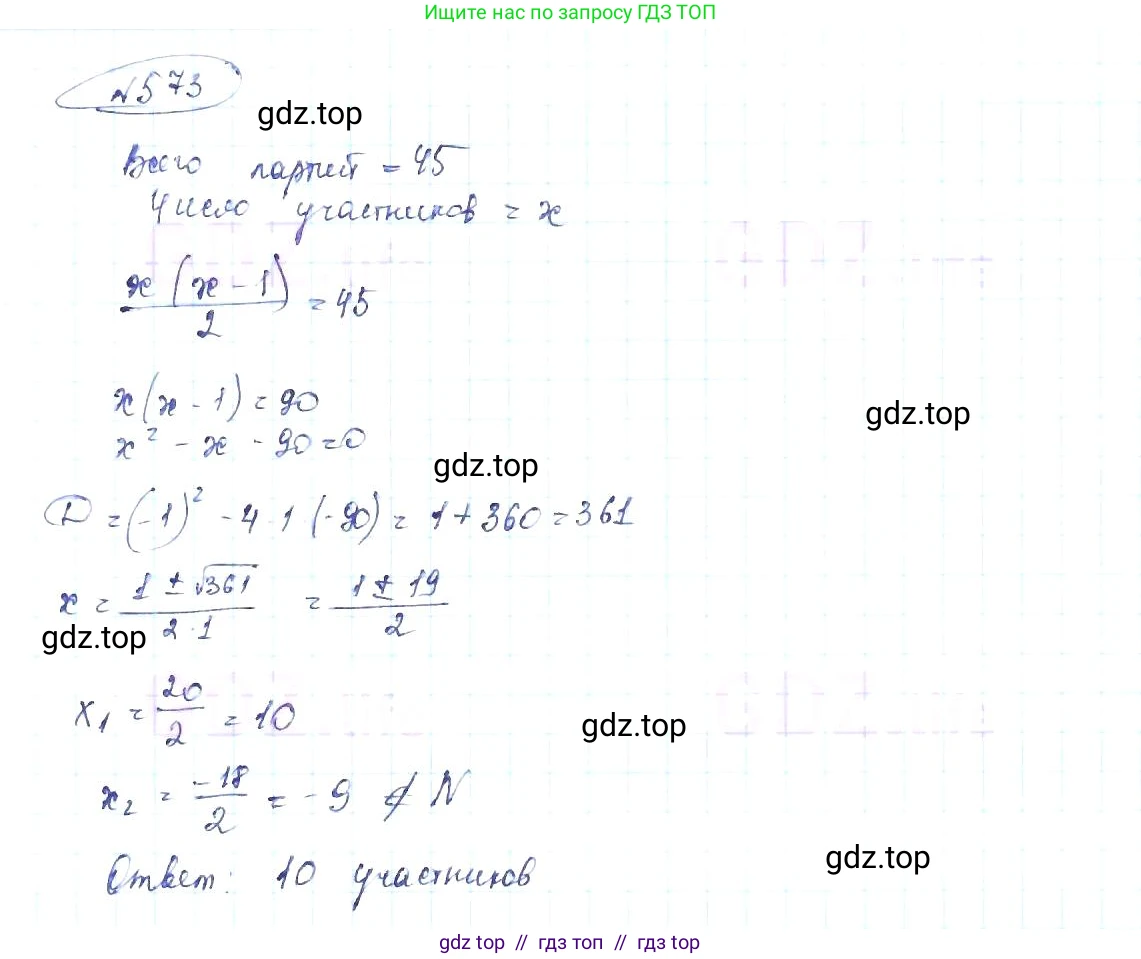 Ищите нас по запросу ГДЗ ТОП
№573
gdz.top
Всего партий = 45
Число участников = x
x(x - 1)/2 = 45
x(x - 1) = 90
gdz.top
x² - x - 90 = 0
gdz.top
D = (-1)² - 4·1(-90) = 1 + 360 = 361
x = (1 ± √361)/(2·1) = (1 ± 19)/2
gdz.top
x₁ = 20/2 = 10
gdz.top
x₂ = -18/2 = -9 ∉ N
gdz.top
Ответ: 10 участников
gdz top // гдз топ // гдз top